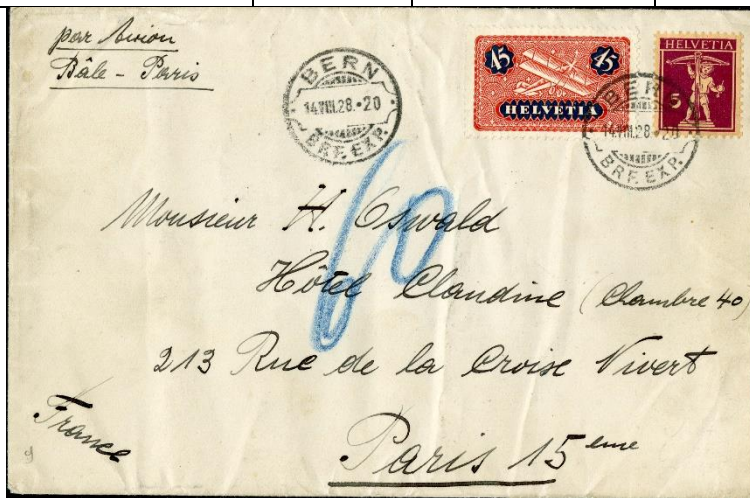 par Avion
Bâle - Paris
BERN
14.VIII.28.-20
BRF. EXP.
45 45
HELVETIA
HELVETIA
5
BERN
14.VIII.28.-20
BRF. EXP.
60
Monsieur H. Oswald
Hôtel Claudine (Chambre 40)
213 Rue de la Croise Nivert
France
Paris 15eme